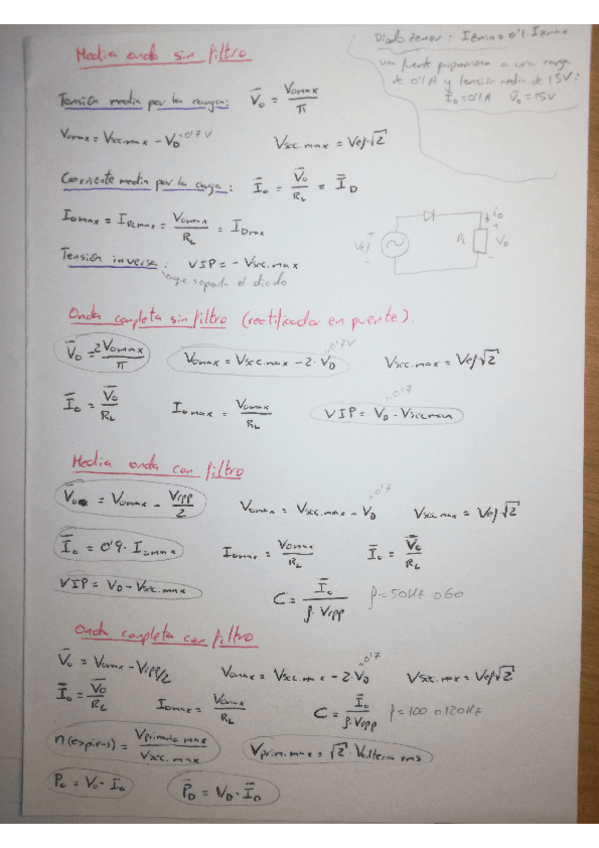 Media onda sin filtro
Diodo zener: Izmin = 0'1 · Izmax
una fuente proporciona a una carga
de 0'1 A y tensión media de 15V:
I̅o = 0'1A V̅o = 15V
Tensión media por la carga: V̅o = Vomax/π
Vomax = Vsec.max - VD 0'7V Vsec.max = Vef√2
Corriente media por la carga: I̅o = V̅o/RL = I̅D
Iomax = IRLmax = Vomax/RL = IDmax
Tensión inversa: VIP = - Vsec.max
que soporta el diodo
Vef RL io + Vo -
Onda completa sin filtro (rectificador en puente).
V̅o = 2Vomax/π Vomax = Vsec.max - 2·VD 0'7V Vsec.max = Vef√2
I̅o = V̅o/RL Iomax = Vomax/RL VIP = VD - Vsecmax 0'7
Media onda con filtro
V̅o = Vomax - Vrpp/2 Vomax = Vsec.max - VD 0'7 Vsec.max = Vef√2
I̅o = 0'9 · Iomax Iomax = Vomax/RL I̅o = V̅o/RL
VIP = VD - Vsec.max C = I̅o/f·Vrpp f = 50Hz o 60
Onda completa con filtro
V̅o = Vomax - Vrpp/2 Vomax = Vsec.max - 2·VD 0'7 Vsec.max = Vef√2
I̅o = V̅o/RL Iomax = Vomax/RL C = I̅o/f·Vrpp f = 100 o 120Hz
n(espiras) = Vprimario max/Vsec.max Vprim.max = √2 · Valterna rms
Po = Vo · I̅o P̅D = VD · I̅D